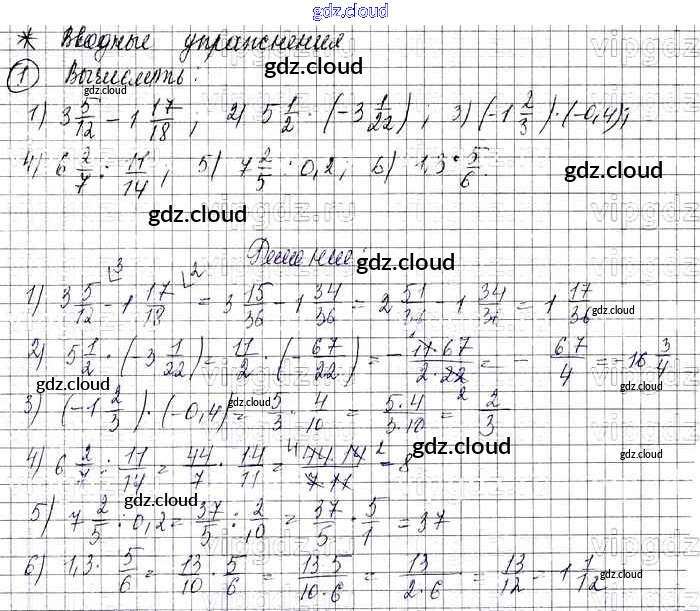 gdz.cloud
* Вводные упражнения
1 Вычислить: gdz.cloud
1) 3 5/12 - 1 17/18; 2) 5 1/2 · (-3 1/22); 3) (-1 2/3) · (-0,4);
4) 6 2/7 : 11/14; 5) 7 2/5 : 0,2; 6) 1,3 · 5/6.
gdz.cloud gdz.cloud
vipgdz.ru
Решение: gdz.cloud
1) 3 5/12 - 1 17/18 = 3 15/36 - 1 34/36 = 2 51/36 - 1 34/36 = 1 17/36
gdz.cloud
2) 5 1/2 · (-3 1/22) = 11/2 · (-67/22) = - 11·67/2·22 = - 67/4 = -16 3/4
gdz.cloud gdz.cloud
3) (-1 2/3) · (-0,4) = 5/3 · 4/10 = 5·4/3·10 = 2/3
gdz.cloud gdz.cloud
4) 6 2/7 : 11/14 = 44/7 · 14/11 = 44·14/7·11 = 8
gdz.cloud gdz.cloud gdz.cloud
5) 7 2/5 : 0,2 = 37/5 : 2/10 = 37/5 · 5/1 = 37
gdz.cloud gdz.cloud
6) 1,3 · 5/6 = 13/10 · 5/6 = 13·5/10·6 = 13/2·6 = 13/12 = 1 1/12
gdz.cloud gdz.cloud